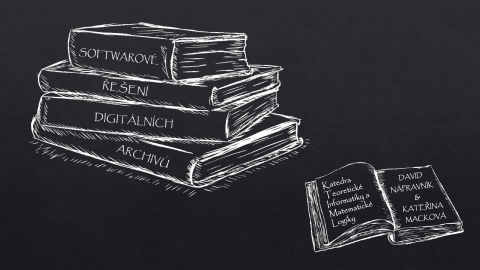 SOFTWAROVÉ
ŘEŠENÍ
DIGITÁLNÍCH
ARCHIVŮ
Katedra
Teoretické
Informatiky a
Matematické
Logiky
DAVID
NÁPRAVNÍK
&
KATEŘINA
MACKOVÁ